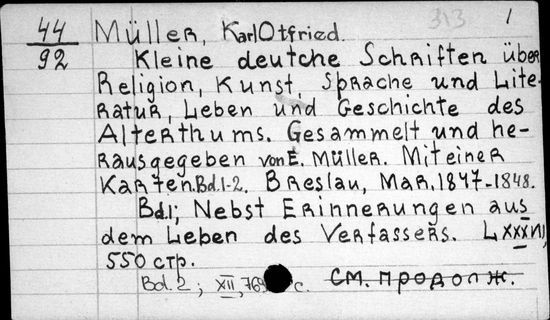 44 Müller, Karl Otfried. 313 1
92 Kleine deutche Schriften über
Religion, Kunst, Sprache und Lite-
ratur, Leben und Geschichte des
Alterthums. Gesammelt und he-
rausgegeben von E. Müller. Mit einer
Karten. Bd. 1-2. Breslau, Max, 1847-1848.
Bd. 1; Nebst Erinnerungen aus
dem Leben des Verfassers. LXXXVI,
550 стр.
Bd. 2; XII, с. см. продолж.